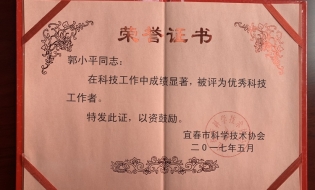 荣誉证书
郭小平同志：
在科技工作中成绩显著，被评为优秀科技
工作者。
特发此证，以资鼓励。
宜春市科学技术协会
二〇一七年五月